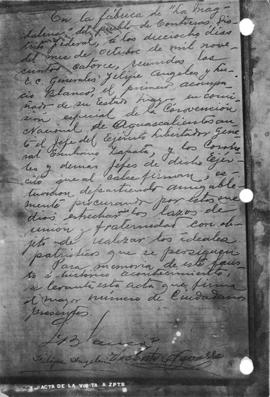 En la fábrica de "La Mag-
dalena" del pueblo de Contreras, Dis-
trito Federal, a los dieciocho días
del mes de Octubre de mil nove-
cientos catorce, reunidos los
C.C. Generales Felipe Angeles y Lu-
cio Blanco, el primero acompa-
ñado de su Estado Mayor en comi-
sión especial de la Convención
Nacional de Aguascalientes an-
te el Jefe del Ejército Libertador Gene-
ral Emiliano Zapata, y los Corone-
les y demás jefes de dicho Ejér-
cito que al calce firman, es-
tuvieron departiendo amigable-
mente procurando por estos me-
dios estrechar los lazos de
unión y fraternidad con ob-
jeto de realizar los ideales
patrióticos que se persiguen.
Para memoria de este faus-
to acontecimiento
se levanta esta acta que firma
el mayor número de Ciudadanos
presentes.
Felipe Angeles
ACTA DE LA VISITA A ZPTA